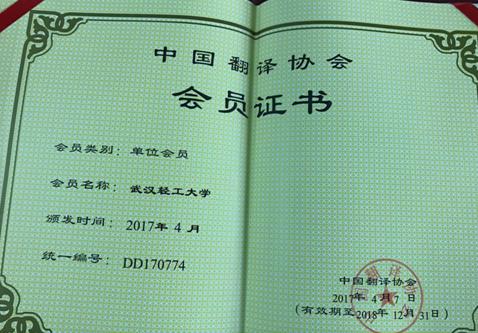 中国翻译协会
会员证书
会员类别：单位会员
会员名称：武汉轻工大学
颁发时间：2017年 4 月
统一编号：DD170774
中国翻译协会
2017年 4月 7 日
(有效期至2018年 12月 31日)